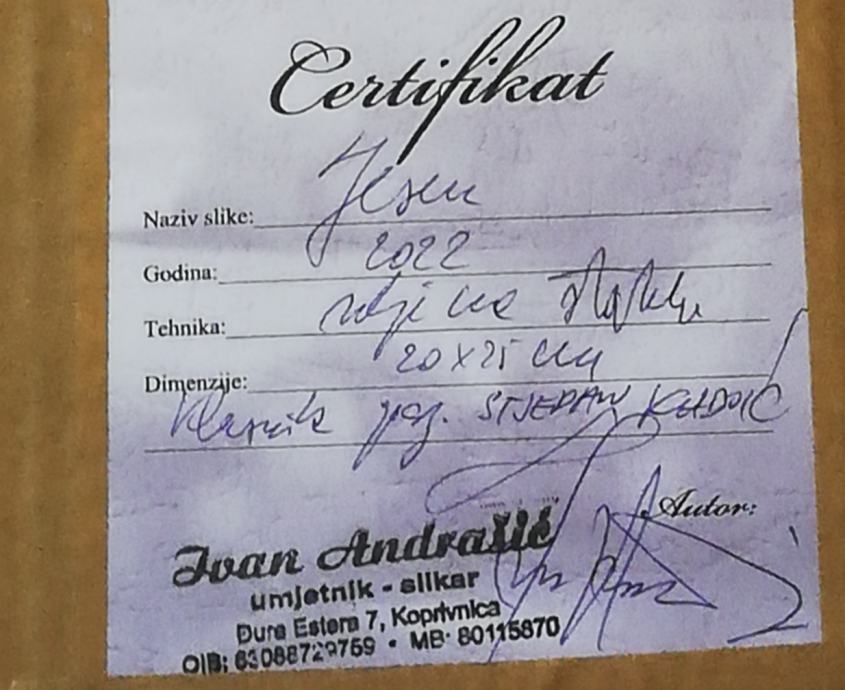 Certifikat
Naziv slike: Jesen
Godina: 2022
Tehnika: ulje na staklu
Dimenzije: 20 x 25 cm
Vlasnik STJEPAN
Autor:
Ivan Andrašić
umjetnik - slikar
Đure Estera 7, Koprivnica
OIB: 63088729759 • MB: 80115870